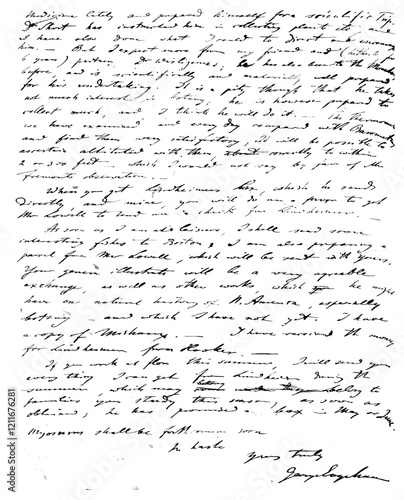 Medicine lately and prepared himself for a scientific Trip.
Dr Short has instructed him in collecting plants etc and
I have also done what I could to direct & encourage
him. — But I expect more from my friend and (hitherto
6 years) partner, Dr Wislizenus, he has also been to the
before, and is scientifically and materially well prepared
for his undertaking. It is a pity though that he takes
not much interest in botany, he is however prepared to
collect much, and I think he will do it. — The Thermometer
we have examined and every day compared with Barometer
and find them very satisfactory, It will be possible to
ascertain altitudes with them about correctly to within
2 or 300 feet. which I would not say by far of the
Fremonts observations. —
When you get Lindheimers box, which he sends
directly and mine, you will do me a favor to get
Mr Lowell to send me a check for Lindheimer. —
As soon as I am at leisure, I shall send some
interesting fishes to Boston, I am also preparing a
parcel for Mr Lowell, which will be sent with yours.
Your genera illustrata will be a very agreable
exchange, as well as other works, which he might
have on natural history of N. America, especially
botany — and which I have not yet. I have
a copy of Michaux. — I have received the money
for Lindheimer from Hooker. —
If you work at flora this summer, I will send you
every thing I can get from Lindheimer during the
summer, which may belong to
families you study this season, as soon as
obtained, he has promised a box in May or June.
shall be forthcoming soon
In haste
yours truly
George Engelmann